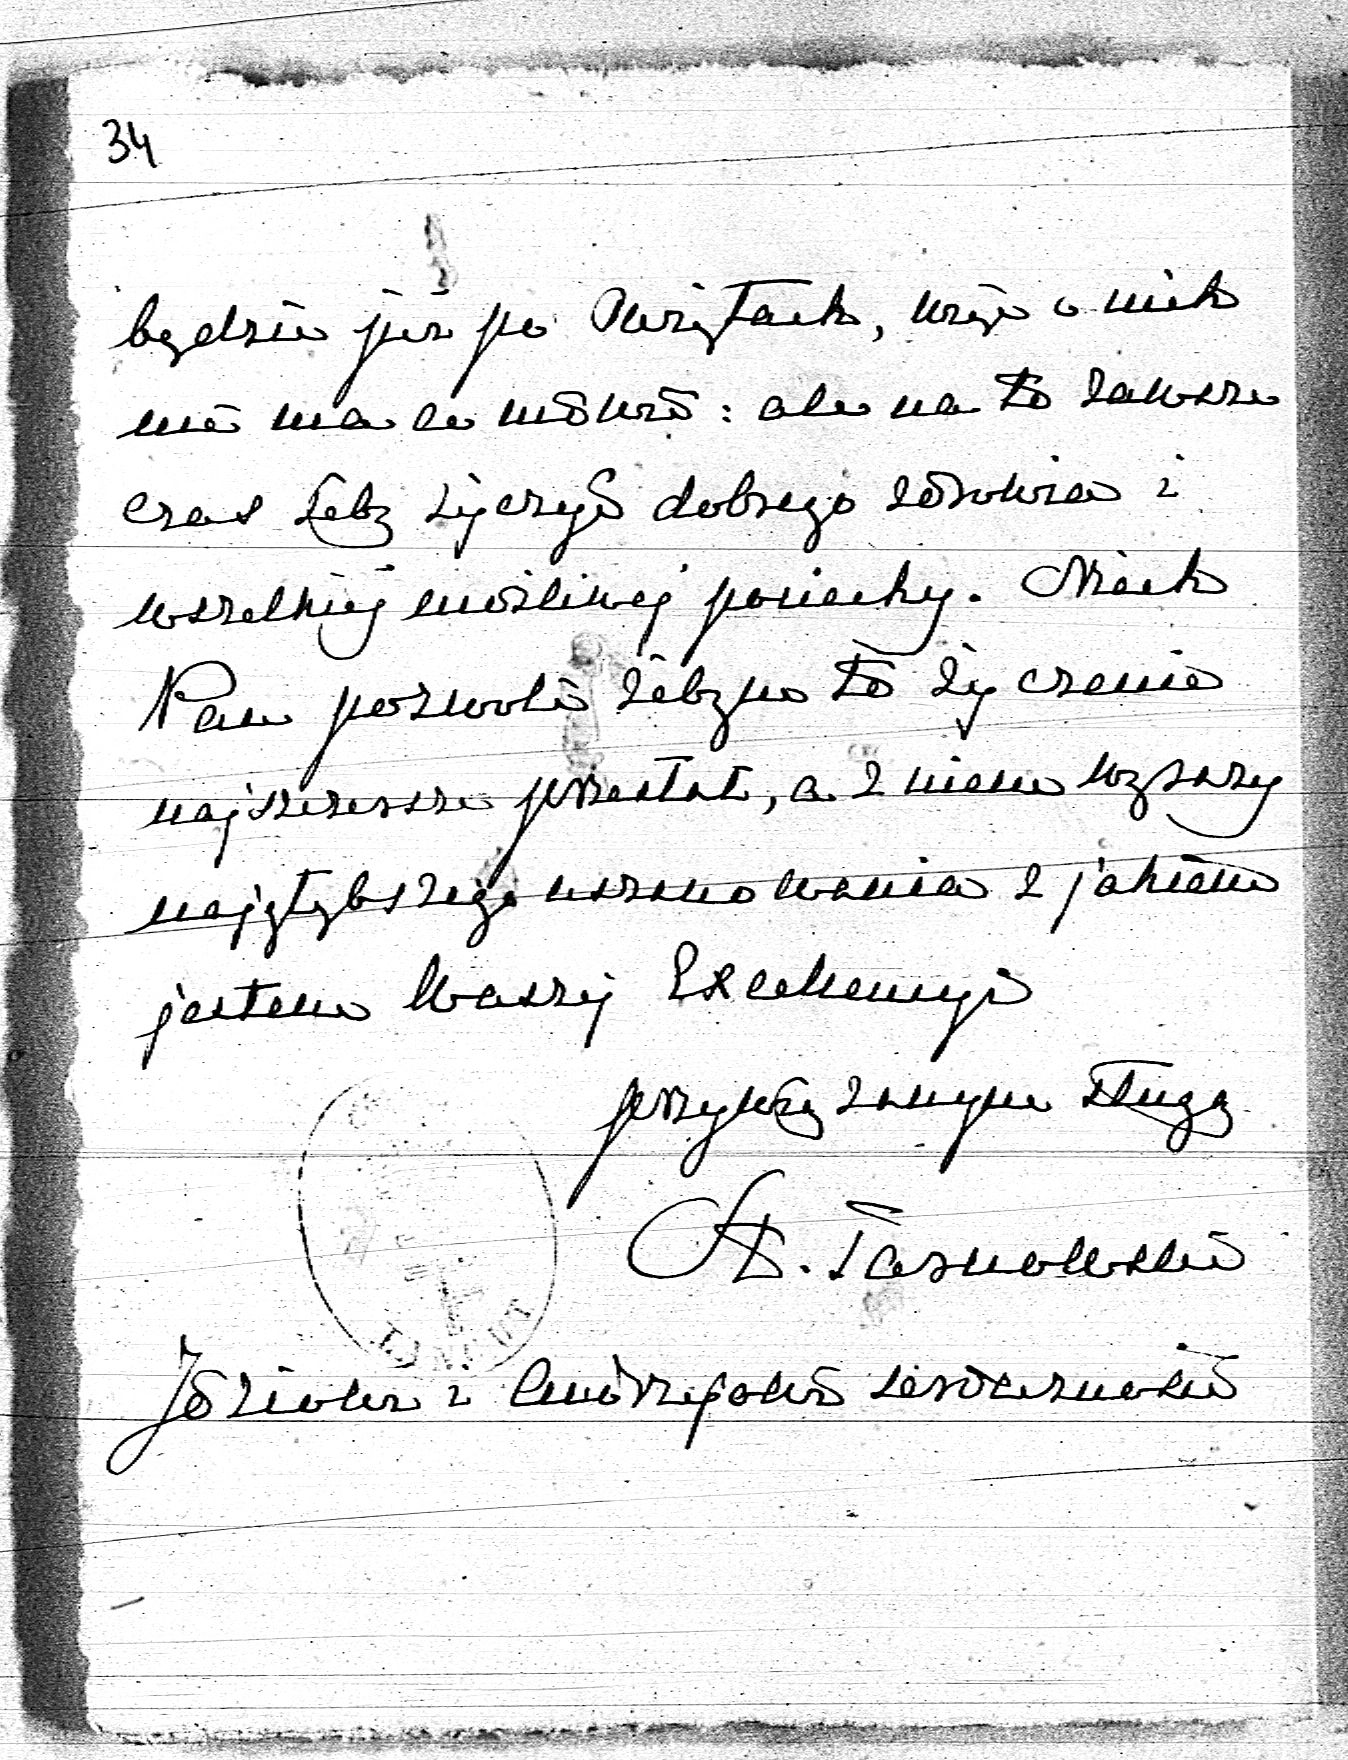 34
będzie już po Świętach, więc o nich
nie ma co mówić: ale na to zawsze
czas żeby życzyć dobrego zdrowia i
wszelkiej możliwej pociechy. Niech
Pan pozwoli żebym to życzenie
najszczersze przesłał, a z niem wyrazy
najgłębszego uszanowania z jakiem
jestem Waszej Excellencyi
przywiązanym sługą
St. Tarnowski
Józiowi i Andrzejowi serdeczności